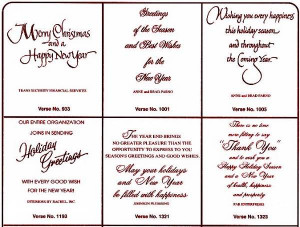 Merry Christmas
and a
Happy New Year
TRANS SECURITY FINANCIAL SERVICES
Verse No. 933
Greetings
of the Season
and Best Wishes
for the
New Year
ANNE and BRAD PARISO
Verse No. 1001
Wishing you every happiness
this holiday season...
and throughout
the Coming Year
ANNE and BRAD PARISO
Verse No. 1005
OUR ENTIRE ORGANIZATION
JOINS IN SENDING
Holiday
Greetings
WITH EVERY GOOD WISH
FOR THE NEW YEAR!
INTERIORS BY RACHEL, INC.
Verse No. 1193
THE YEAR END BRINGS
NO GREATER PLEASURE THAN THE
OPPORTUNITY TO EXPRESS TO YOU
SEASON'S GREETINGS AND GOOD WISHES.
May your holidays
and New Year
be filled with happiness
JOHNSON PLUMBING
Verse No. 1321
There is no time
more fitting to say
"Thank You"
and to wish you a
Happy Holiday Season
and a New Year
of health, happiness
and prosperity.
FAB ENTERPRISES
Verse No. 1325